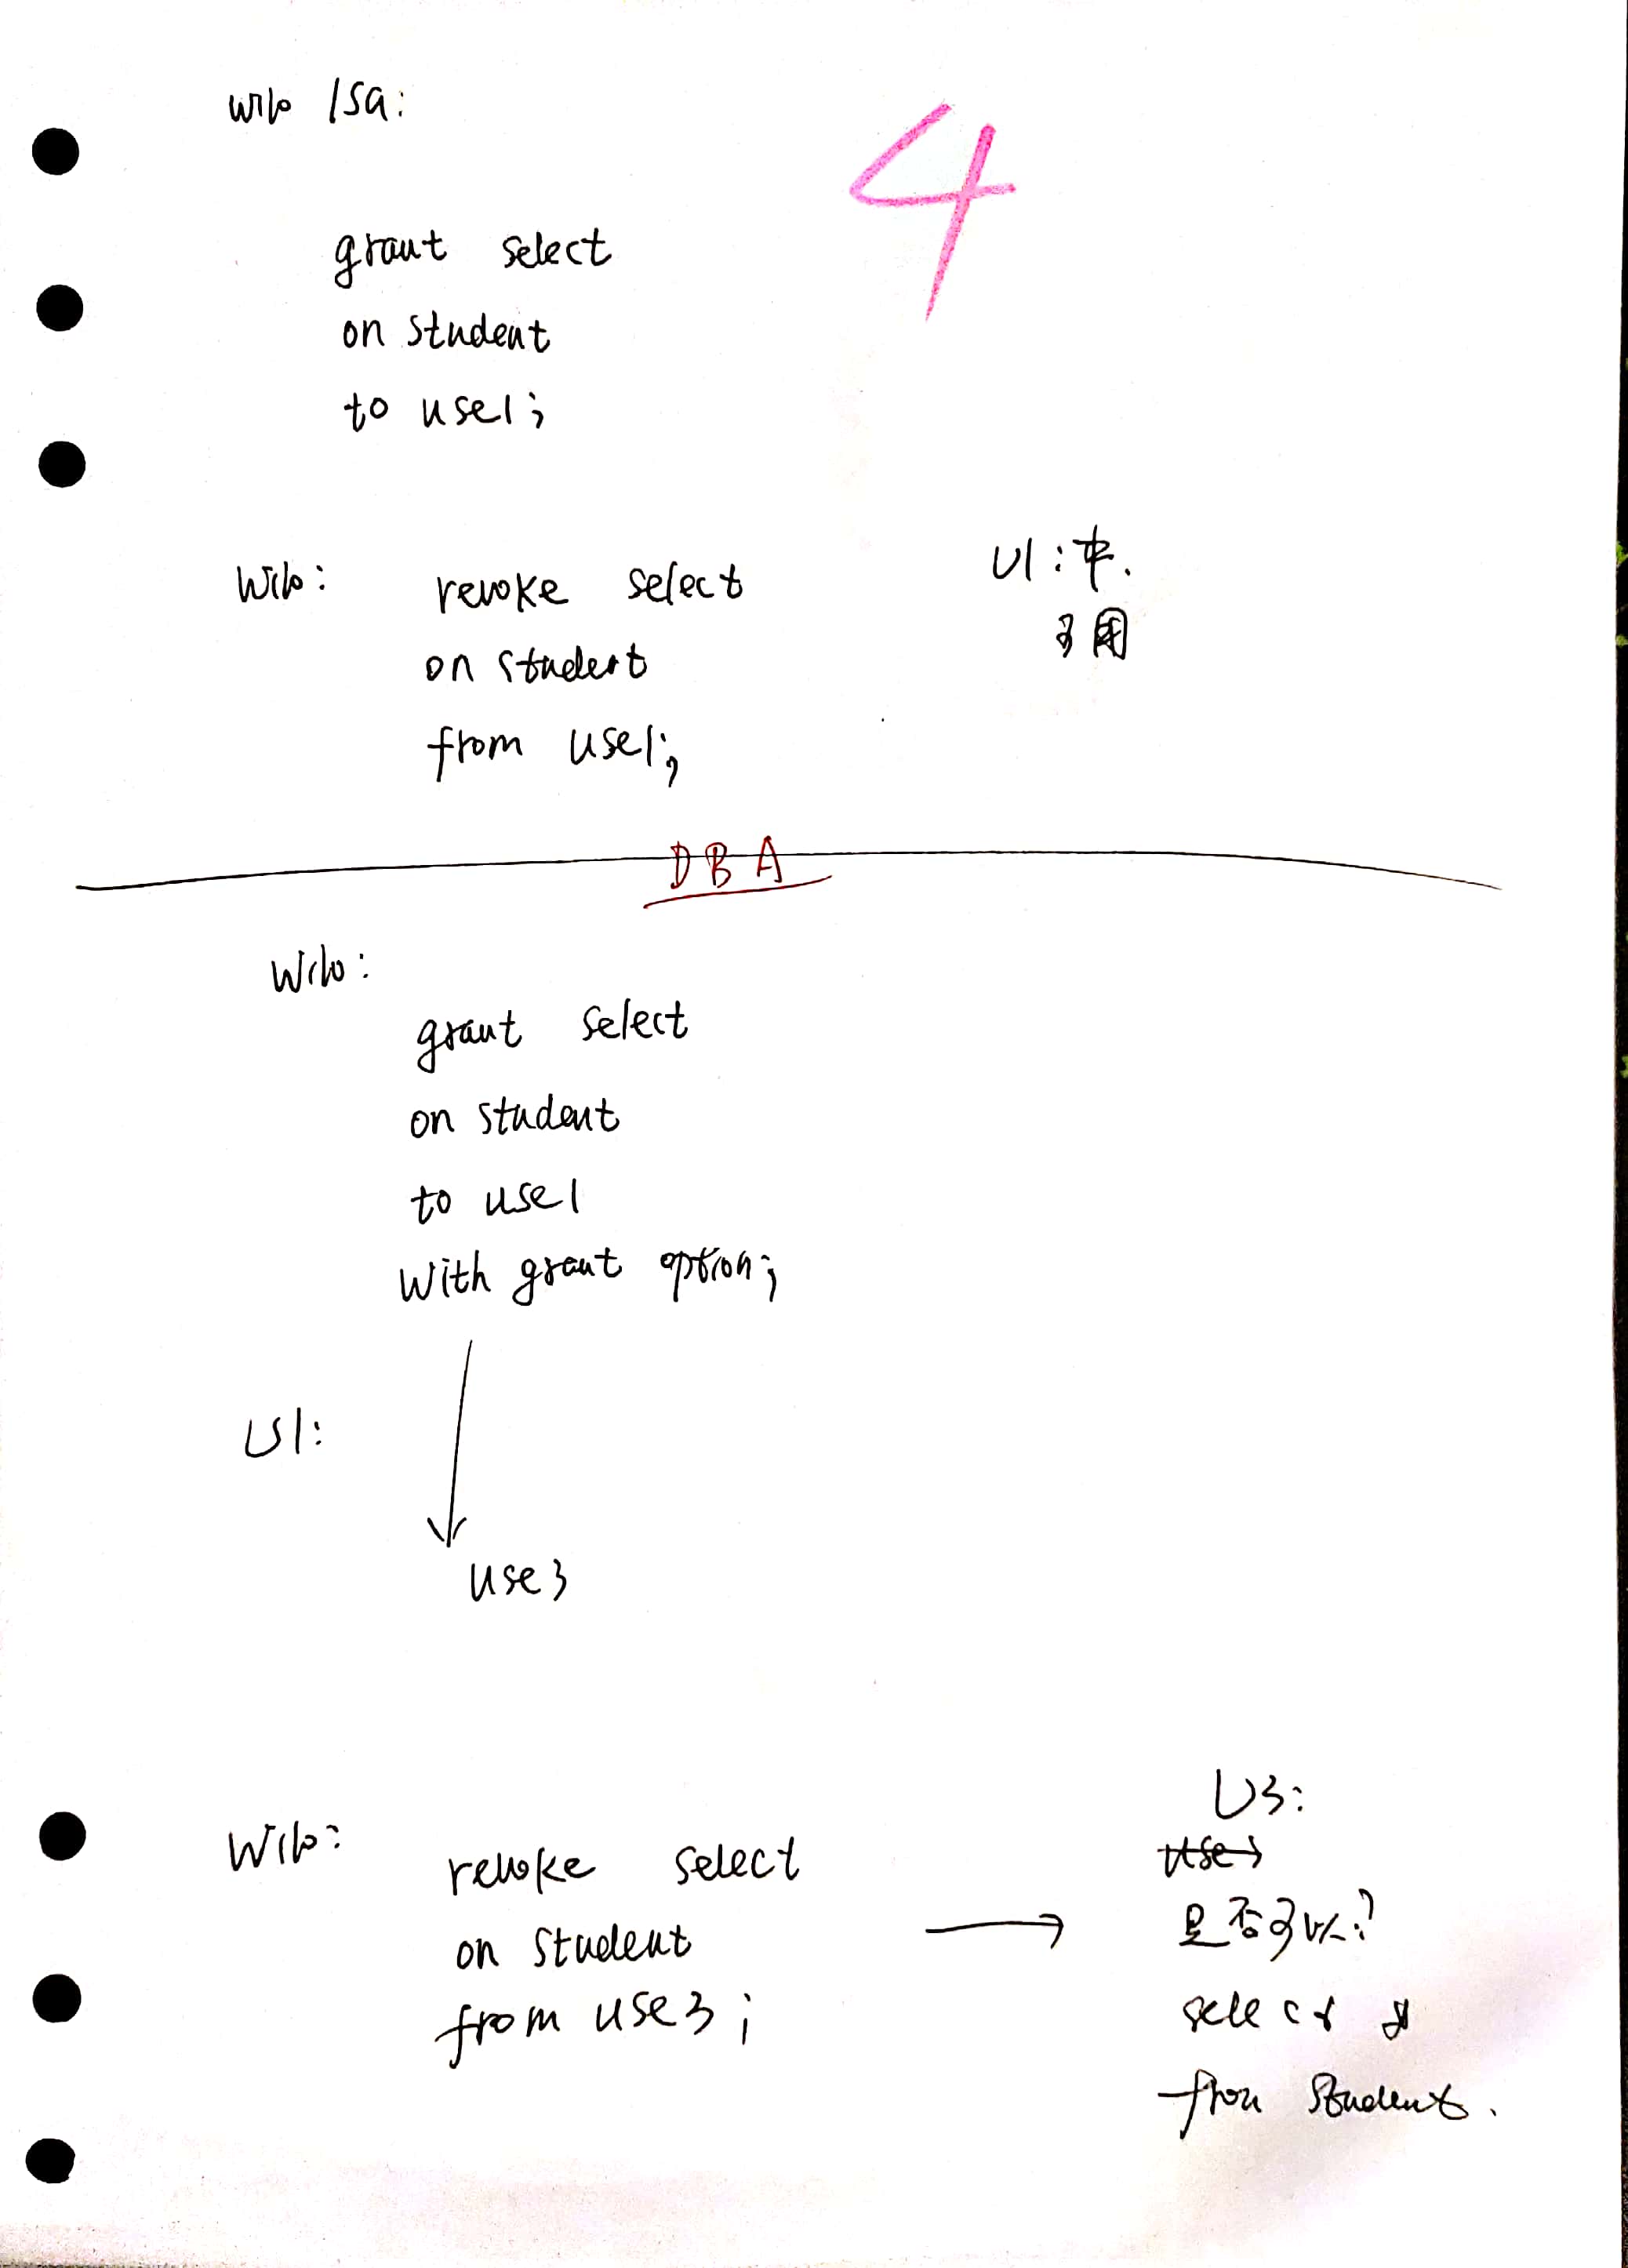 win10 /sa:
4
grant select
on student
to use1;
win10:
revoke select
on student
from use1;
U1:中.
可用
DBA
win10:
grant select
on student
to use1
with grant option;
U1:
use3
win10:
revoke select
on student
from use3;
U3:
是否可以?
select *
from student.